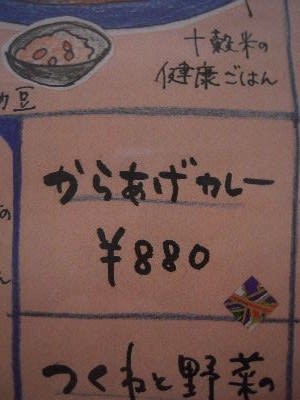 十穀米の
健康ごはん
豆
からあげカレー
¥880
つくねと野菜の